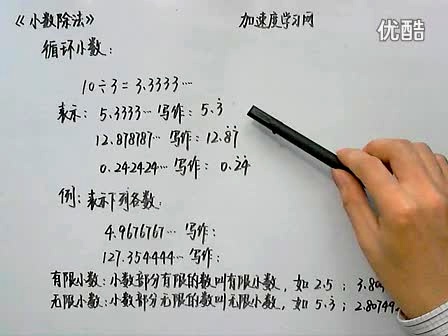 《小数除法》 加速度学习网 优酷
循环小数：
10÷3=3.3333…
表示：5.3333… 写作：5.3̇
12.878787… 写作：12.8̇7̇
0.242424… 写作：0.2̇4̇
例：表示下列各数：
4.9676767… 写作：
127.354444… 写作：
有限小数：小数部分有限的数叫有限小数，如 2.5 ； 3.80
无限小数：小数部分无限的数叫无限小数，如 5.3̇ ； 2.80744